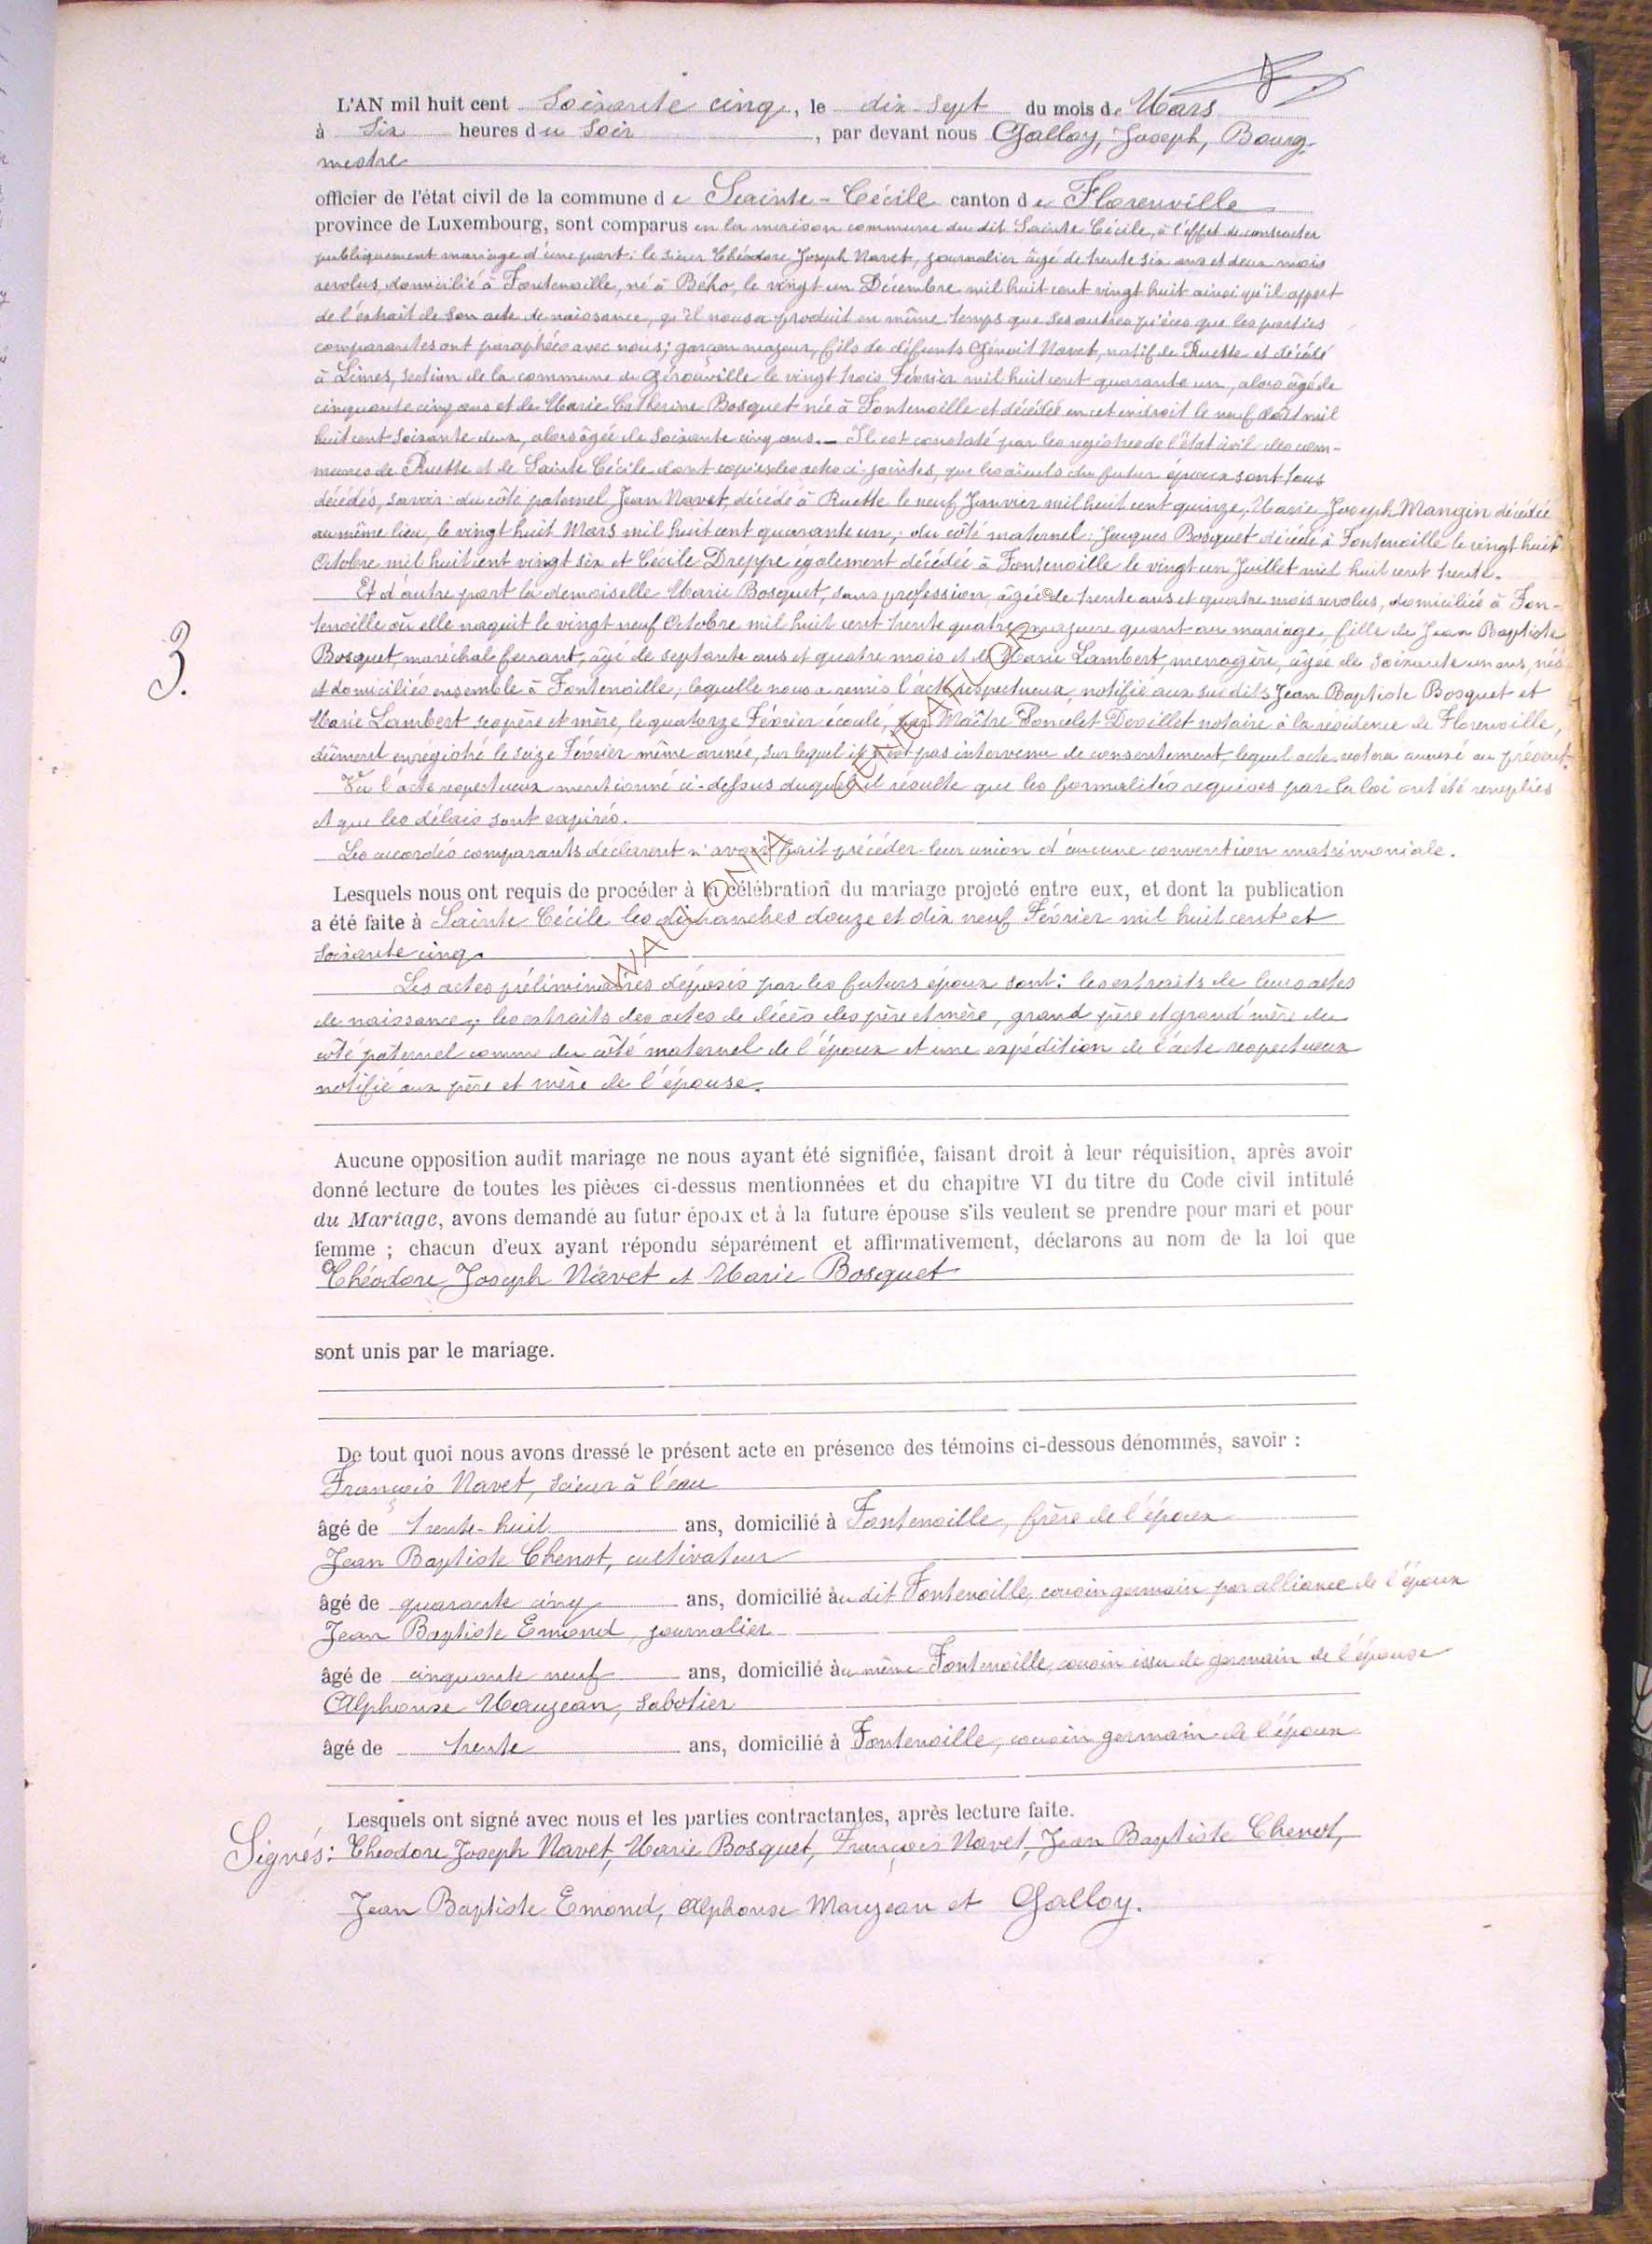 L'AN mil huit cent Soixante cinq, le dix-sept du mois de Mars
à six heures du soir, par devant nous Galloy, Joseph, Bourg-
mestre
officier de l'état civil de la commune de Sainte-Cécile canton de Florenville
province de Luxembourg, sont comparus en la maison commune du dit Sainte Cécile, à l'effet de contracter
publiquement mariage d'une part: le sieur Théodore Joseph Navet, journalier âgé de trente six ans et deux mois
revolus, domicilié à Fontenoille, né à Bého, le vingt un Décembre mil huit cent vingt huit ainsi qu'il appert
de l'extrait de son acte de naissance, qu'il nous a produit en même temps que ses autres pièces que les parties
comparantes ont paraphées avec nous; garçon majeur, fils de défunts Génoit Navet, natif de Ruette et décédé
à Limes, section de la commune de Gérouville le vingt trois Février mil huit cent quarante un, alors âgé de
cinquante cinq ans et de Marie Catherine Bosquet née à Fontenoille et décédée en cet endroit le neuf Août mil
huit cent soixante deux, alors âgée de soixante cinq ans. — Il est constaté par les registres de l'état civil des com-
munes de Ruette et de Sainte Cécile dont copies des actes ci-jointes, que les aïeuls du futur époux sont tous
décédés, savoir: du côté paternel Jean Navet, décédé à Ruette le neuf Janvier mil huit cent quinze, Marie Joseph Mangin décédée
au même lieu, le vingt huit Mars mil huit cent quarante un; du côté maternel: Jacques Bosquet décédé à Fontenoille le vingt huit
Octobre mil huit cent vingt six et Cécile Dreppe également décédée à Fontenoille le vingt un Juillet mil huit cent trente.
Et d'autre part la demoiselle Marie Bosquet, sans profession, âgée de trente ans et quatre mois revolus, domiciliée à Fon-
tenoille où elle naquit le vingt neuf Octobre mil huit cent trente quatre, majeure quant au mariage, fille de Jean Baptiste
Bosquet, maréchal ferrant, âgé de septante ans et quatre mois et de Marie Lambert, ménagère, âgée de soixante un ans, nés
et domiciliés ensemble à Fontenoille, laquelle nous a remis l'acte respectueux notifié aux susdits Jean Baptiste Bosquet et
Marie Lambert ses père et mère, le quatorze Février écoulé, par Maître Poncelet-Devillet notaire à la résidence de Florenville,
dûment enrégistré le seize Février même année, sur lequel il n'est pas intervenu de consentement, lequel acte restera annexé au présent.
Vu l'acte respectueux mentionné ci-dessus duquel il résulte que les formalités requises par la loi ont été remplies
et que les délais sont expirés.
Les accordés comparants déclarent n'avoir fait précéder leur union d'aucune convention matrimoniale.
Lesquels nous ont requis de procéder à la célébration du mariage projeté entre eux, et dont la publication
a été faite à Sainte Cécile les dimanches douze et dix neuf Février mil huit cent et
soixante cinq.
Les actes préliminaires déposés par les futurs époux sont: les extraits de leurs actes
de naissance; les extraits des actes de décès des père et mère, grand père et grand'mère du
côté paternel comme du côté maternel de l'époux et une expédition de l'acte respectueux
notifié aux père et mère de l'épouse.
3.
WALLONIA GENEAFLOR ©
Aucune opposition audit mariage ne nous ayant été signifiée, faisant droit à leur réquisition, après avoir
donné lecture de toutes les pièces ci-dessus mentionnées et du chapitre VI du titre du Code civil intitulé
du Mariage, avons demandé au futur époux et à la future épouse s'ils veulent se prendre pour mari et pour
femme ; chacun d'eux ayant répondu séparément et affirmativement, déclarons au nom de la loi que
Théodore Joseph Navet et Marie Bosquet
sont unis par le mariage.
De tout quoi nous avons dressé le présent acte en présence des témoins ci-dessous dénommés, savoir :
François Navet, scieur à l'eau
âgé de trente-huit ans, domicilié à Fontenoille, frère de l'époux
Jean Baptiste Chenot, cultivateur
âgé de quarante cinq ans, domicilié àu dit Fontenoille, cousin germain par alliance de l'époux
Jean Baptiste Emond, journalier
âgé de cinquante neuf ans, domicilié àu même Fontenoille, cousin issu de germain de l'épouse
Alphonse Maujean, sabotier
âgé de trente ans, domicilié à Fontenoille, cousin germain de l'époux
Lesquels ont signé avec nous et les parties contractantes, après lecture faite.
Signés: Théodore Joseph Navet, Marie Bosquet, François Navet, Jean Baptiste Chenot,
Jean Baptiste Emond, Alphonse Maujean et Galloy.